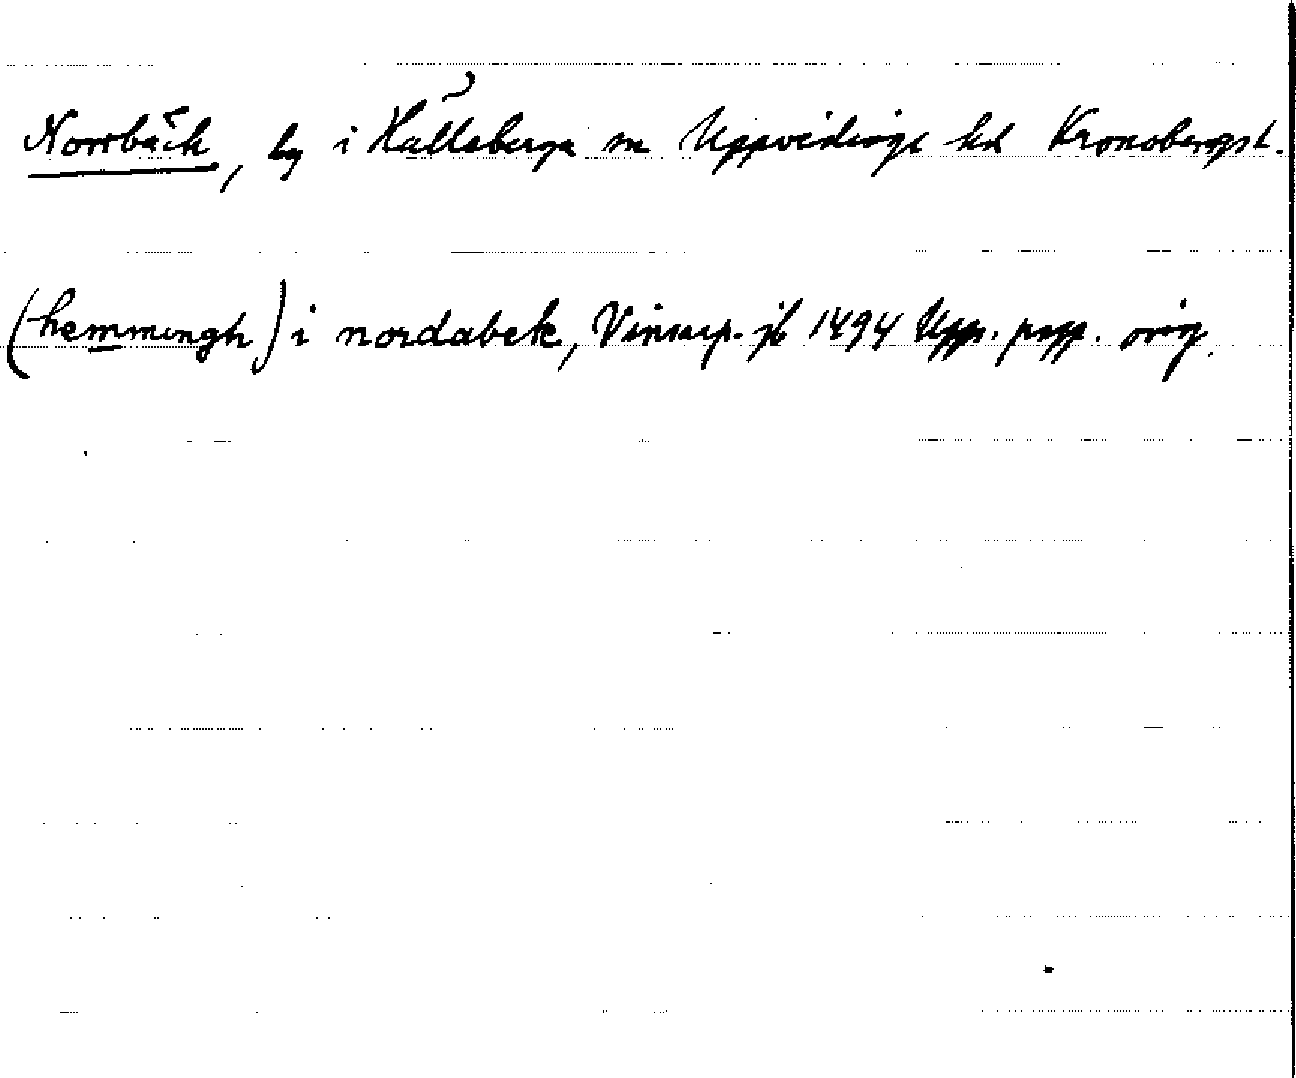 Norrbäck, by i Hälleberga sn Uppvidinge hd Kronobergs l.
(hemmingh) i nordabek, Vinsarp. jb 1494 Upps. papp. orig.